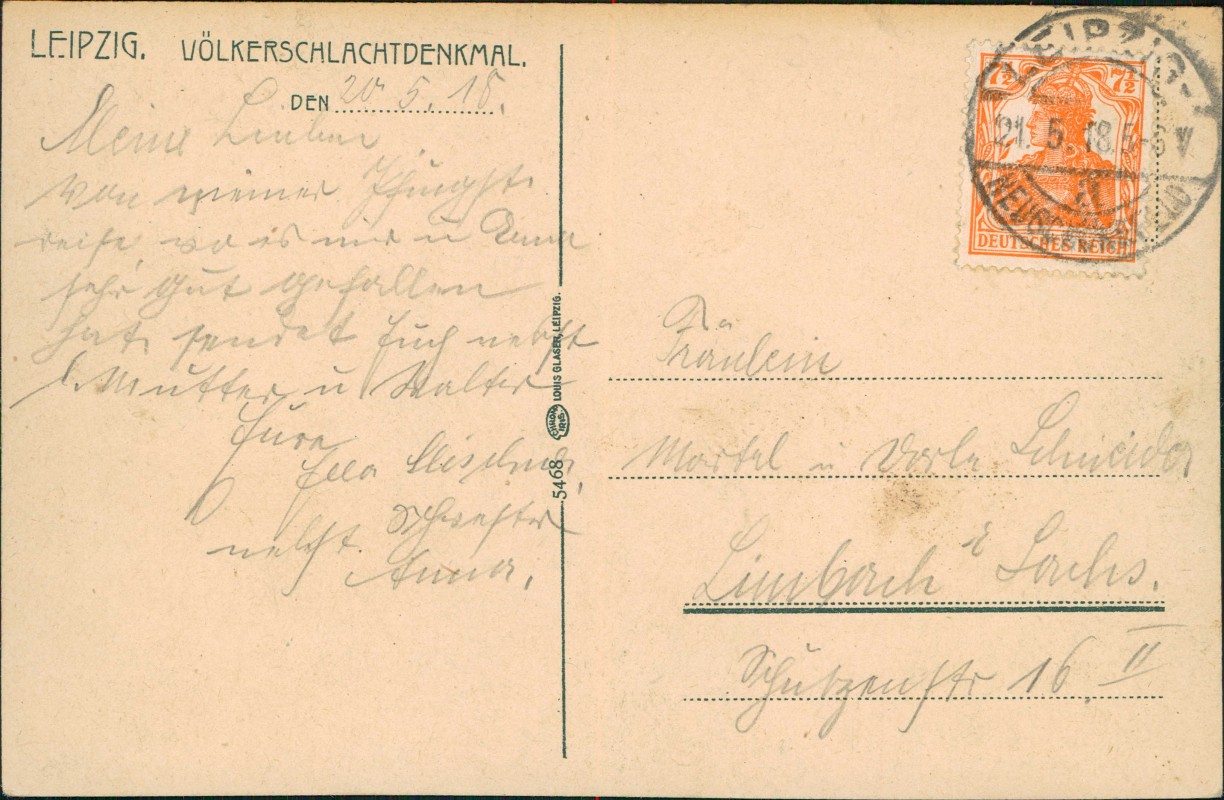 LEIPZIG. VÖLKERSCHLACHTDENKMAL.
DEN 20 5. 18.
Meine Lieben
von meiner Pfingst-
reise, wo es mir u Anna
sehr gut gefallen
hat, sendet Euch nebst
l. Mutter u Walter
Eure
Ella
nebst Schwester
Anna.
5468 CHROM IRIS LOUIS GLASER, LEIPZIG.
7½ 7½
DEUTSCHES REICH
LEIPZIG-
21. 5. 18. 5-6 V.
Fräulein
Martel u Dorle Schneider
Limbach i Sachs.
Schützenstr 16 II